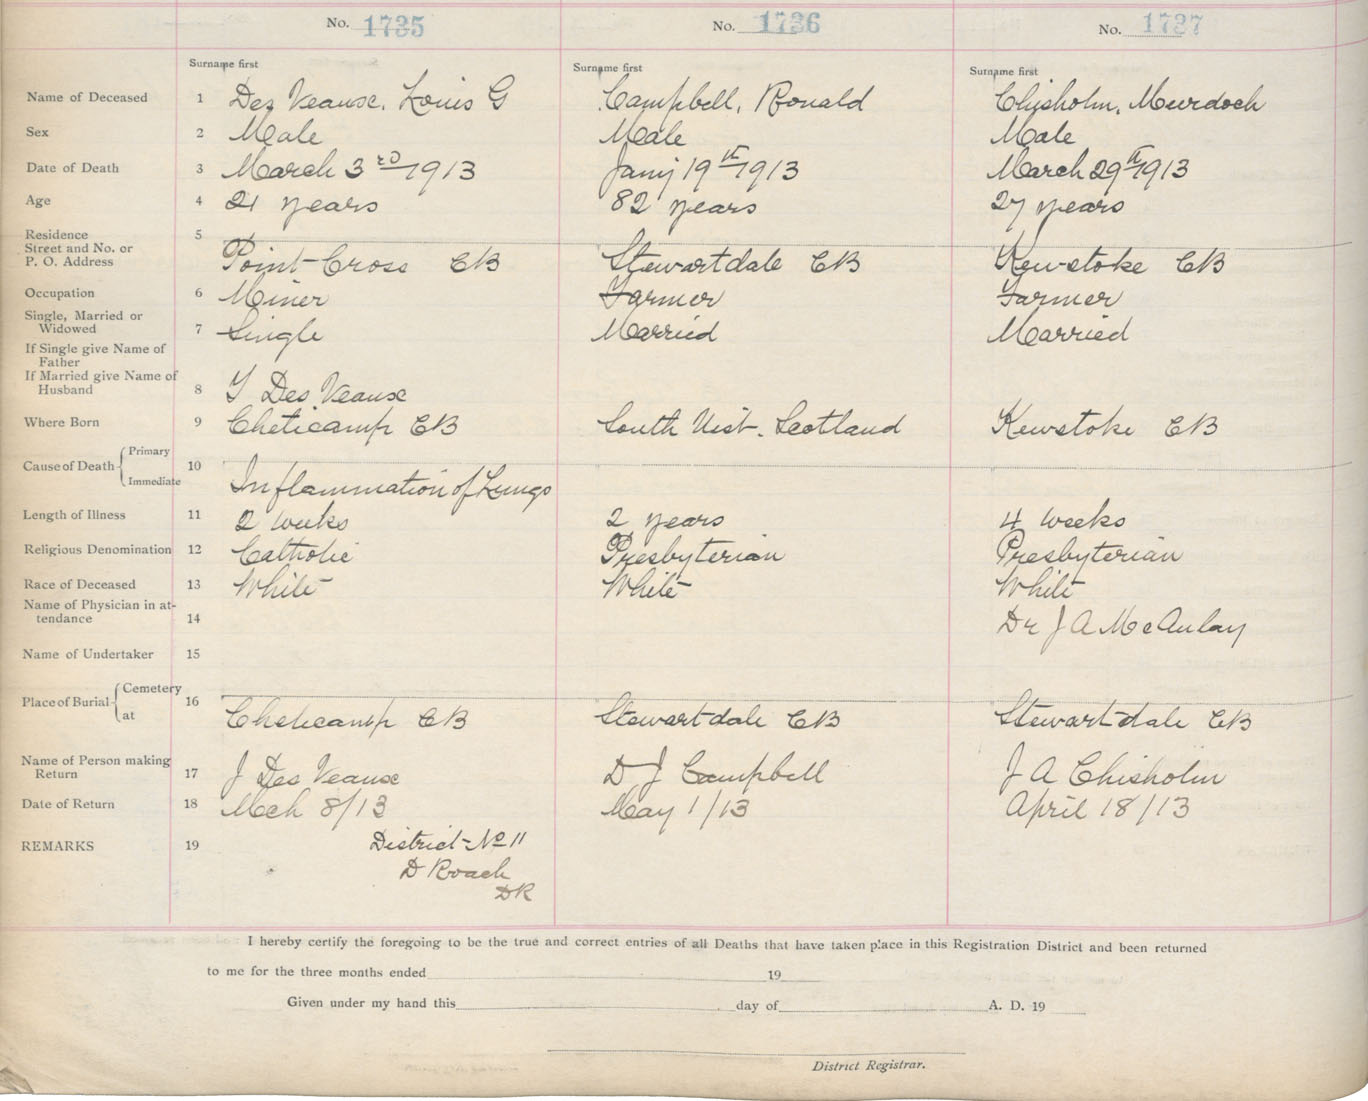 No. 1735 No. 1736 No. 1737
Surname first Surname first Surname first
Name of Deceased 1 Des Veause, Louis G Campbell, Ronald Chisholm, Murdoch
Sex 2 Male Male Male
Date of Death 3 March 3rd 1913 Jany 19th 1913 March 29th 1913
Age 4 21 years 82 years 27 years
Residence 5
Street and No. or
P. O. Address Point Cross CB Stewartdale CB Kewstoke CB
Occupation 6 Miner Farmer Farmer
Single, Married or
Widowed 7 Single Married Married
If Single give Name of
Father
If Married give Name of
Husband 8 Des Veause
Where Born 9 Cheticamp CB South Uist. Scotland Kewstoke CB
Cause of Death Primary 10
Immediate Inflammation of Lungs
Length of Illness 11 2 weeks 2 years 4 weeks
Religious Denomination 12 Catholic Presbyterian Presbyterian
Race of Deceased 13 White White White
Name of Physician in at-
tendance 14 Dr J A McAulay
Name of Undertaker 15
Place of Burial Cemetery 16
at Cheticamp CB Stewartdale CB Stewartdale CB
Name of Person making
Return 17 J Des Veause D J Campbell J A Chisholm
Date of Return 18 Mch 8/13 May 1/13 April 18/13
REMARKS 19 District No 11
D Roach
DR
I hereby certify the foregoing to be the true and correct entries of all Deaths that have taken place in this Registration District and been returned
to me for the three months ended 19
Given under my hand this day of A. D. 19
District Registrar.